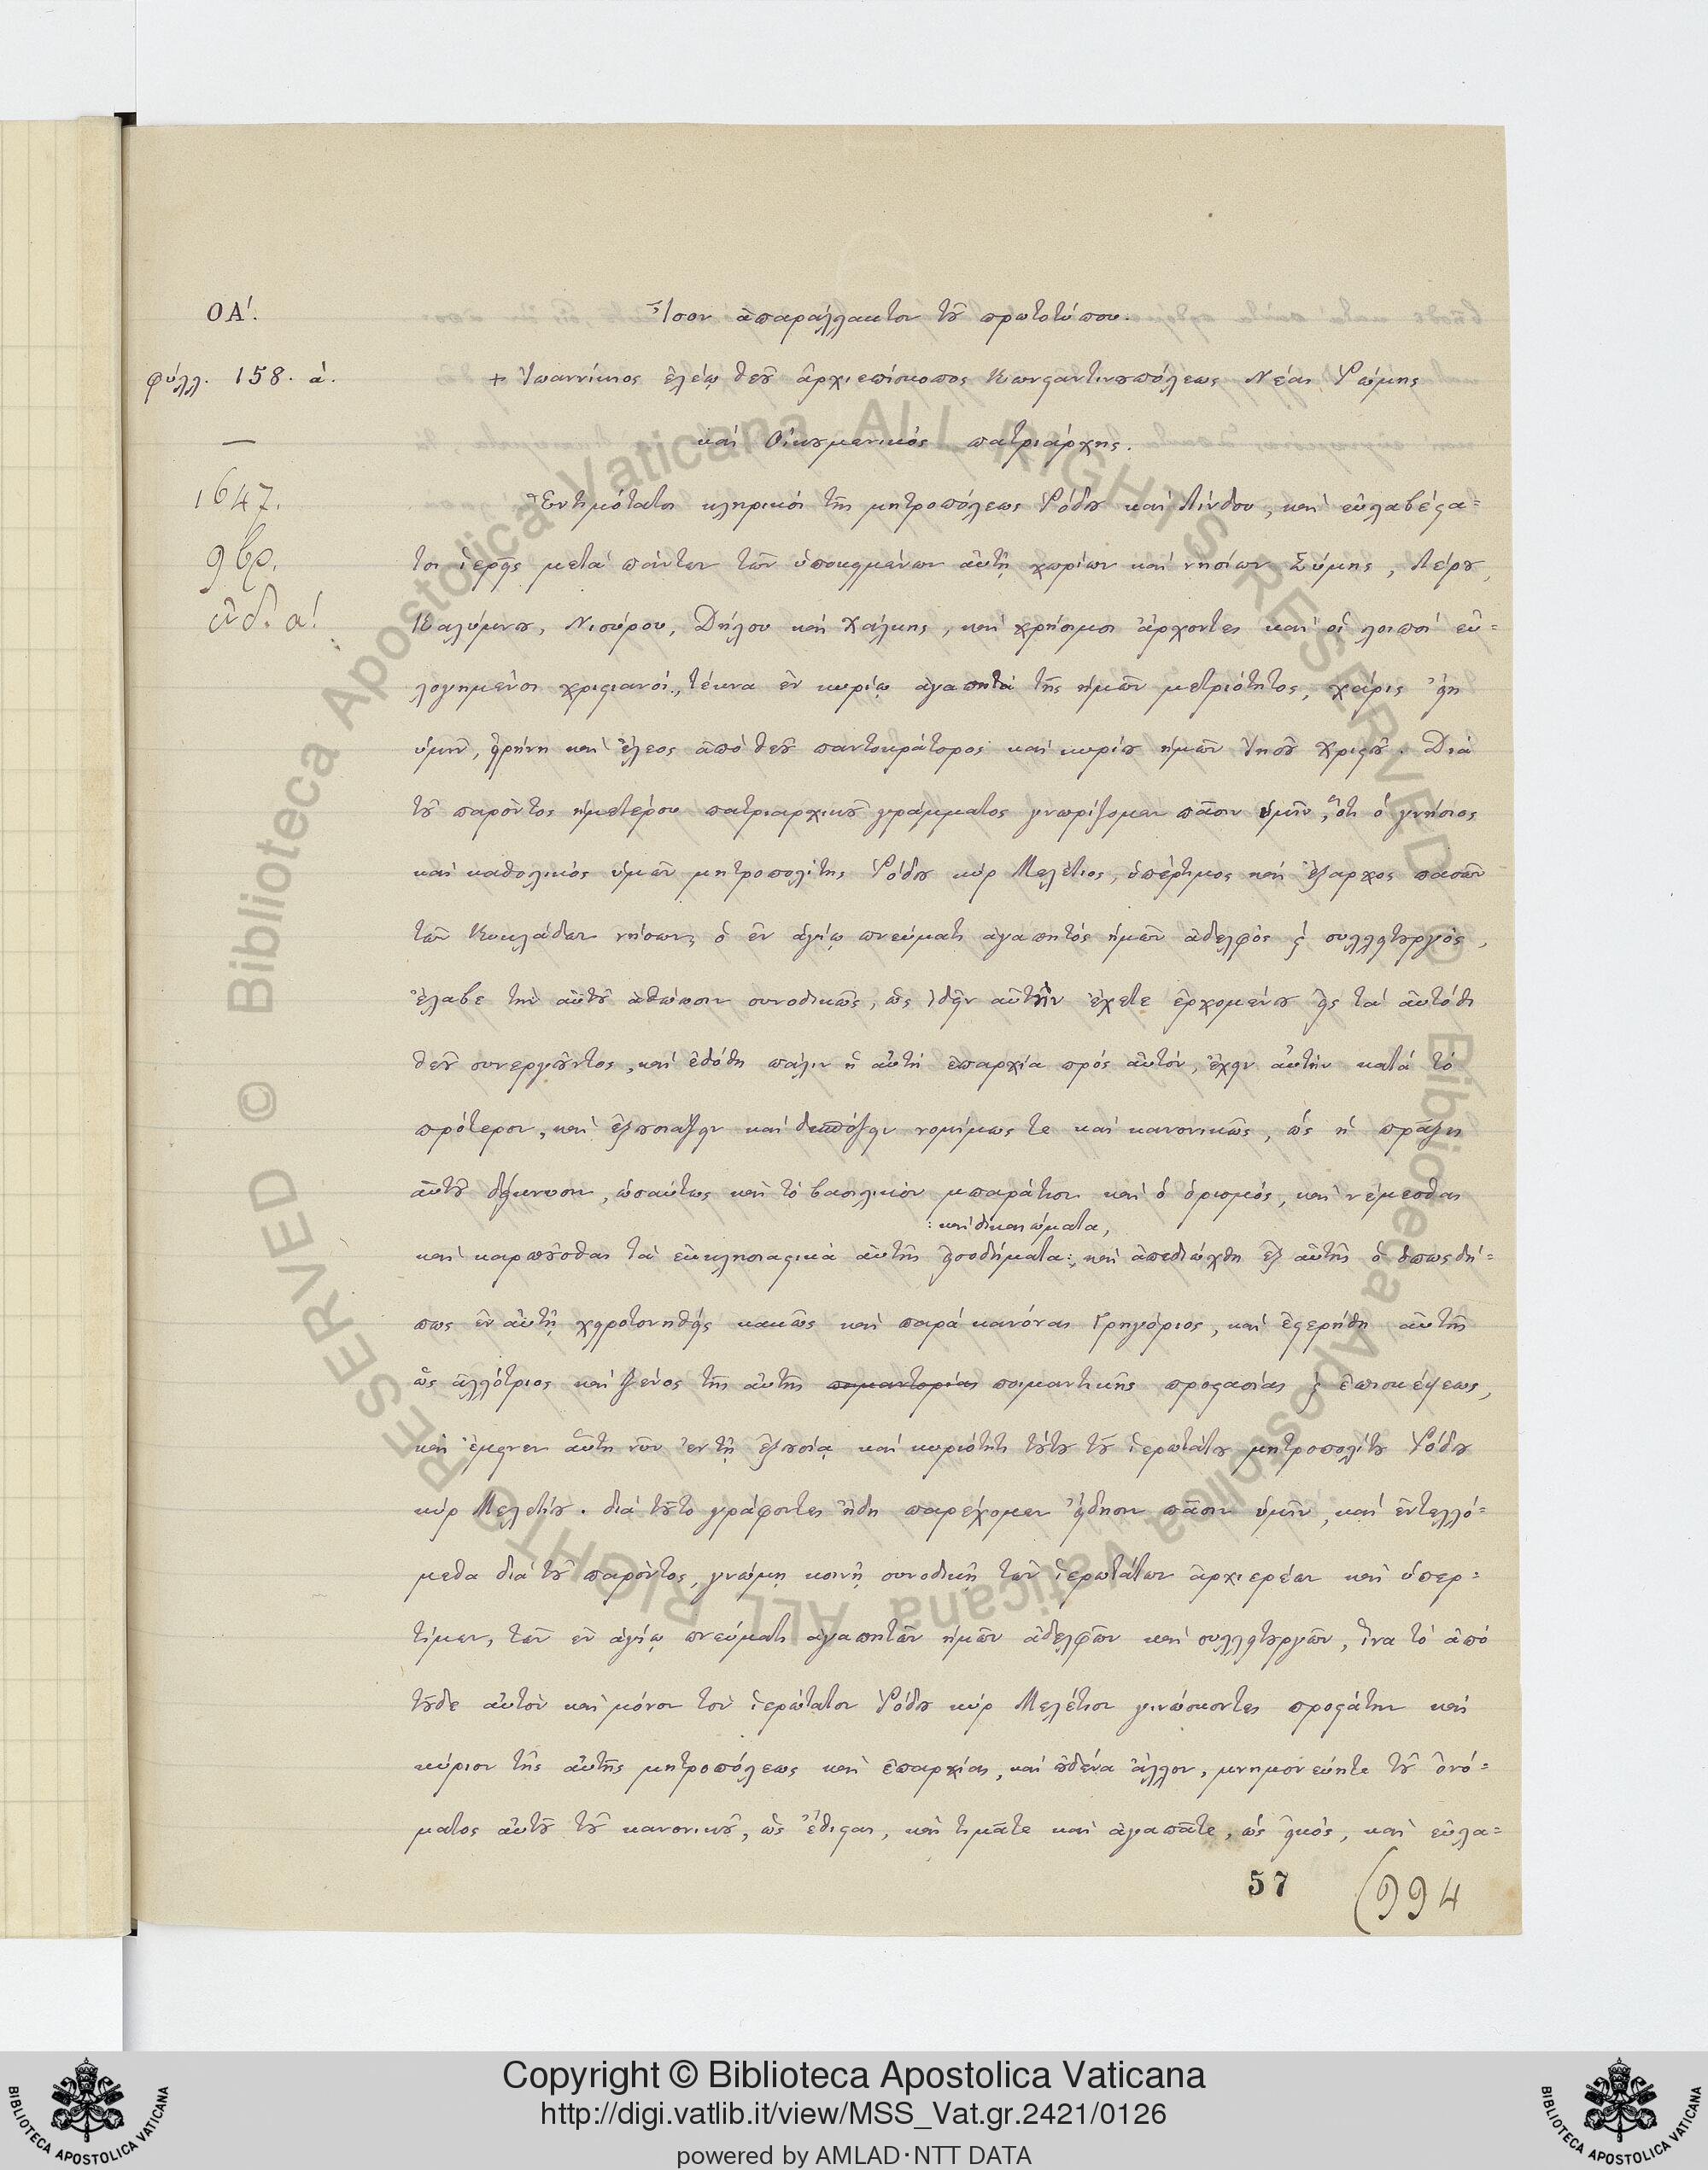 ΟΑ΄.
Ἴσον ἀπαράλλακτον τοῦ πρωτοτύπου.
φύλλ. 158. α.
+ Ἰωαννίκιος ἐλέῳ θεοῦ ἀρχιεπίσκοπος Κωνϛαντινουπόλεως Νέας Ῥώμης
καὶ Οἰκουμενικὸς πατριάρχης.
1647.
9βρ.
ἰνδ. α΄
Ἐντιμότατοι κληρικοὶ τῆς μητροπόλεως Ῥόδου καὶ Λίνδου, καὶ εὐλαβέϛα=
τοι ἱερεῖς μετὰ πάντων τῶν ὑποκειμένων αὐτῇ χωρίων καὶ νησίων Σύμης, Λέρου,
Καλύμνου, Νισύρου, Δήλου καὶ Χάλκης, καὶ χρήσιμοι ἄρχοντες καὶ οἱ λοιποὶ εὐ=
λογημένοι χριϛιανοί, τέκνα ἐν κυρίῳ ἀγαπητὰ τῆς ἡμῶν μετριότητος, χάρις εἴη
ὑμῖν, εἰρήνη καὶ ἔλεος ἀπὸ θεοῦ παντοκράτορος καὶ κυρίου ἡμῶν Ἰησοῦ Χριϛοῦ. Διὰ
τοῦ παρόντος ἡμετέρου πατριαρχικοῦ γράμματος γνωρίζομεν πᾶσιν ὑμῖν, ὅτι ὁ γνήσιος
καὶ καθολικὸς ὑμῶν μητροπολίτης Ῥόδου κὺρ Μελέτιος, ὑπέρτιμος καὶ ἔξαρχος πασῶν
τῶν Κυκλάδων νήσων, ὁ ἐν ἁγίῳ πνεύματι ἀγαπητὸς ἡμῶν ἀδελφὸς ϗ συλλειτουργὸς,
ἔλαβε τὴν αὐτοῦ ἀθώωσιν συνοδικῶς, ὡς ἰδεῖν αὐτὴν ἔχετε ἐρχομένου εἰς τὰ αὐτόθι
θεοῦ συνεργοῦντος, καὶ ἐδόθη πάλιν ἡ αὐτὴ ἐπαρχία πρὸς αὐτὸν, ἔχειν αὐτὴν κατὰ τὸ
πρότερον, καὶ ἐξουσιάζειν καὶ δεσπόζειν νομίμως τε καὶ κανονικῶς, ὡς ἡ πρᾶξις
αὐτοῦ δείκνυσιν, ὡσαύτως καὶ τὸ βασιλικὸν μπαράτιον καὶ ὁ ὁρισμὸς, καὶ νέμεσθαι
: καὶ δικαιώματα,
καὶ καρποῦσθαι τὰ ἐκκλησιαϛικὰ αὐτῆς εἰσοδήματα:, καὶ ἀπεδιώχθη ἐξ αὐτῆς ὁ ὁπωςδή=
πως ἐν αὐτῇ χειροτονηθεὶς κακῶς καὶ παρὰ κανόνας Γρηγόριος, καὶ ἐϛερήθη αὐτῆς
ὡς ἀλλότριος καὶ ξένος τῆς αὐτῆς ποιμαντορίας ποιμαντικῆς προϛασίας ϗ ἐπισκέψεως,
καὶ ἔμεινεν αὕτη νῦν ἐν τῇ ἐξουσίᾳ καὶ κυριότητι τούτου τοῦ ἱερωτάτου μητροπολίτου Ῥόδου
κὺρ Μελετίου. διὰ τοῦτο γράφοντες ἤδη παρέχομεν εἴδησιν πᾶσιν ὑμῖν, καὶ ἐντελλό=
μεθα διὰ τοῦ παρόντος, γνώμῃ κοινῇ συνοδικῇ τῶν ἱερωτάτων ἀρχιερέων καὶ ὑπερ=
τίμων, τῶν ἐν ἁγίῳ πνεύματι ἀγαπητῶν ἡμῶν ἀδελφῶν καὶ συλλειτουργῶν, ἵνα τὸ ἀπὸ
τοῦδε αὐτὸν καὶ μόνον τὸν ἱερώτατον Ῥόδου κὺρ Μελέτιον γινώσκοντες προϛάτην καὶ
κύριον τῆς αὐτῆς μητροπόλεως καὶ ἐπαρχίας, καὶ οὐδένα ἄλλον, μνημονεύητε τοῦ ὀνό=
ματος αὐτοῦ τοῦ κανονικοῦ, ὡς ἔθιϛαι, καὶ τιμᾶτε καὶ ἀγαπᾶτε, ὡς εἰκὸς, καὶ εὐλα=
57
(994
© Biblioteca Apostolica Vaticana ALL RIGHTS RESERVED
© Biblioteca Apostolica Vaticana ALL RIGHTS RESERVED
Copyright © Biblioteca Apostolica Vaticana
http://digi.vatlib.it/view/MSS_Vat.gr.2421/0126
powered by AMLAD·NTT DATA
BIBLIOTECA APOSTOLICA VATICANA
BIBLIOTECA APOSTOLICA VATICANA